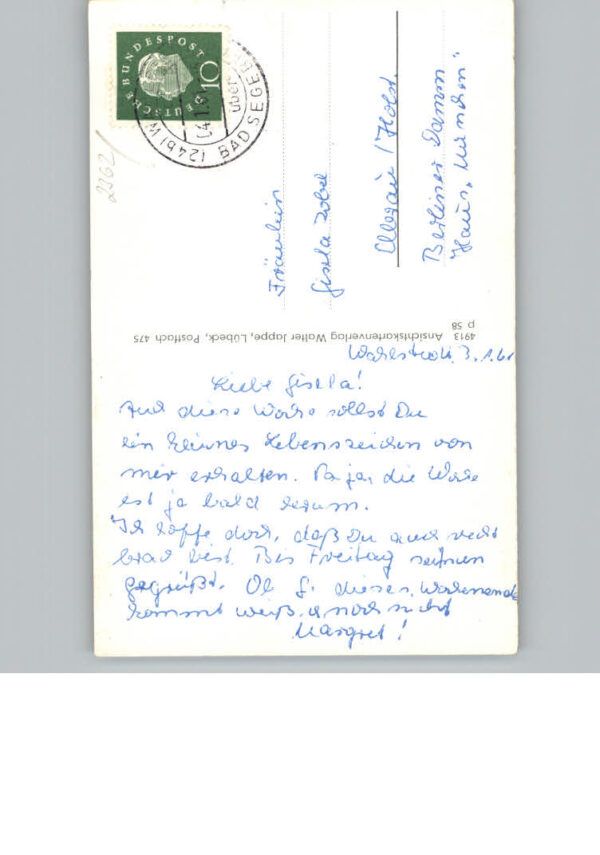 DEUTSCHE BUNDESPOST
10
BAD SEGEB
über
(24b) W
2362/
Fräulein
Gisela
/Holst.
Berliner Damm
Haus "München"
4913 Ansichtskartenverlag Walter Joppe, Lübeck, Postfach 475
p 58
Wahlstedt, 3.1.61
Liebe Gisela!
Auf diese Weise sollst Du
ein kleines Lebenszeichen von
mir erhalten. Na ja, die Woche
ist ja bald herum.
Ich hoffe doch, daß Du auch recht
brav bist. Bis Freitag
gegrüßt. Ob G. dieses Wochenende
kommt weiß ich noch nicht
Margret!